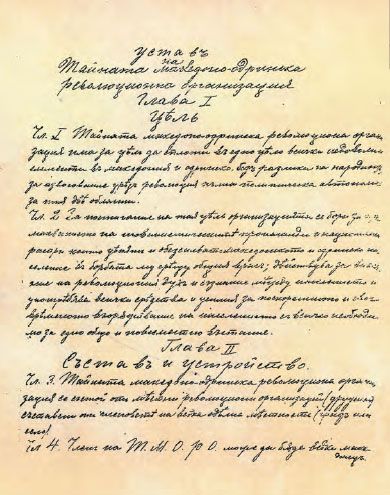 Уставъ
на
Тайната Македоно-одринска
революционна организация
Глава I
Цѣль
Чл. I Тайната македоноодринска революциона орга
зация има за цѣл да сплоти въ едно цѣло всички недоволни
елементи въ македония и одринско, безъ разлика на народность
за извоювание чрѣзъ революция пълна политическа автономия
за тия двѣ области.
Чл. 2. За постигание на тая цѣль организацията се бори за
на шовинистическите пропаганди и национални
разпри които цѣпятъ и обезсилватъ македонското и одринско на
селение въ борбата му срѣщу общия врагъ; дѣйствува за
не на революционния духъ и съзнание между населението и
употрѣбява всички срѣдства и усилия за
врѣменното въоръжавание на населението съ всичко необходи
мо за едно общо и повсеместно въстание.
Глава II
Съставъ и устройство.
Чл. 3. Тайната македоно-одринска революциона орга
зация се състои от мѣстни революциони организации (дружини)
съставени отъ членоветѣ на всѣка мѣстность (градъ или
село)
Чл 4. Членъ на Т М. О. Р О. може да бѫде всѣки маке
донецъ